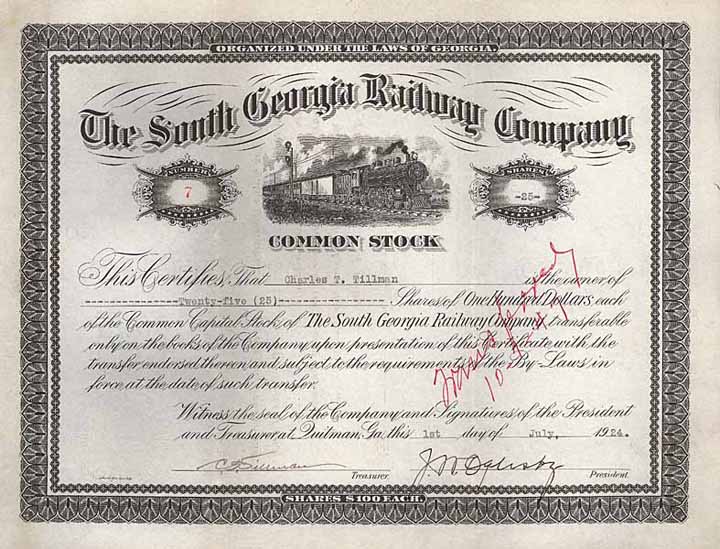 ORGANIZED UNDER THE LAWS OF GEORGIA.
The South Georgia Railway Company
NUMBER
7
SHARES
-25-
COMMON STOCK
This Certifies, That Charles T. Tillman is the owner of
Twenty-five (25) Shares of One Hundred Dollars each
of the Common Capital Stock of The South Georgia Railway Company, transferable
only on the books of the Company upon presentation of this Certificate with the
transfer endorsed thereon and subject to the requirements of the By-Laws in
force at the date of such transfer.
Transferred
Witness the seal of the Company and Signatures of the President
and Treasurer at Quitman, Ga. this 1st day of July, 1924.
C T Tillman
Treasurer.
J. W. Oglesby
President.
SHARES $100 EACH.